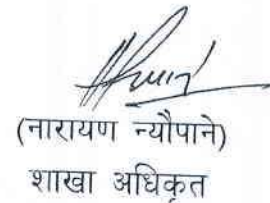 (नारायण न्यौपाने)
शाखा अधिकृत